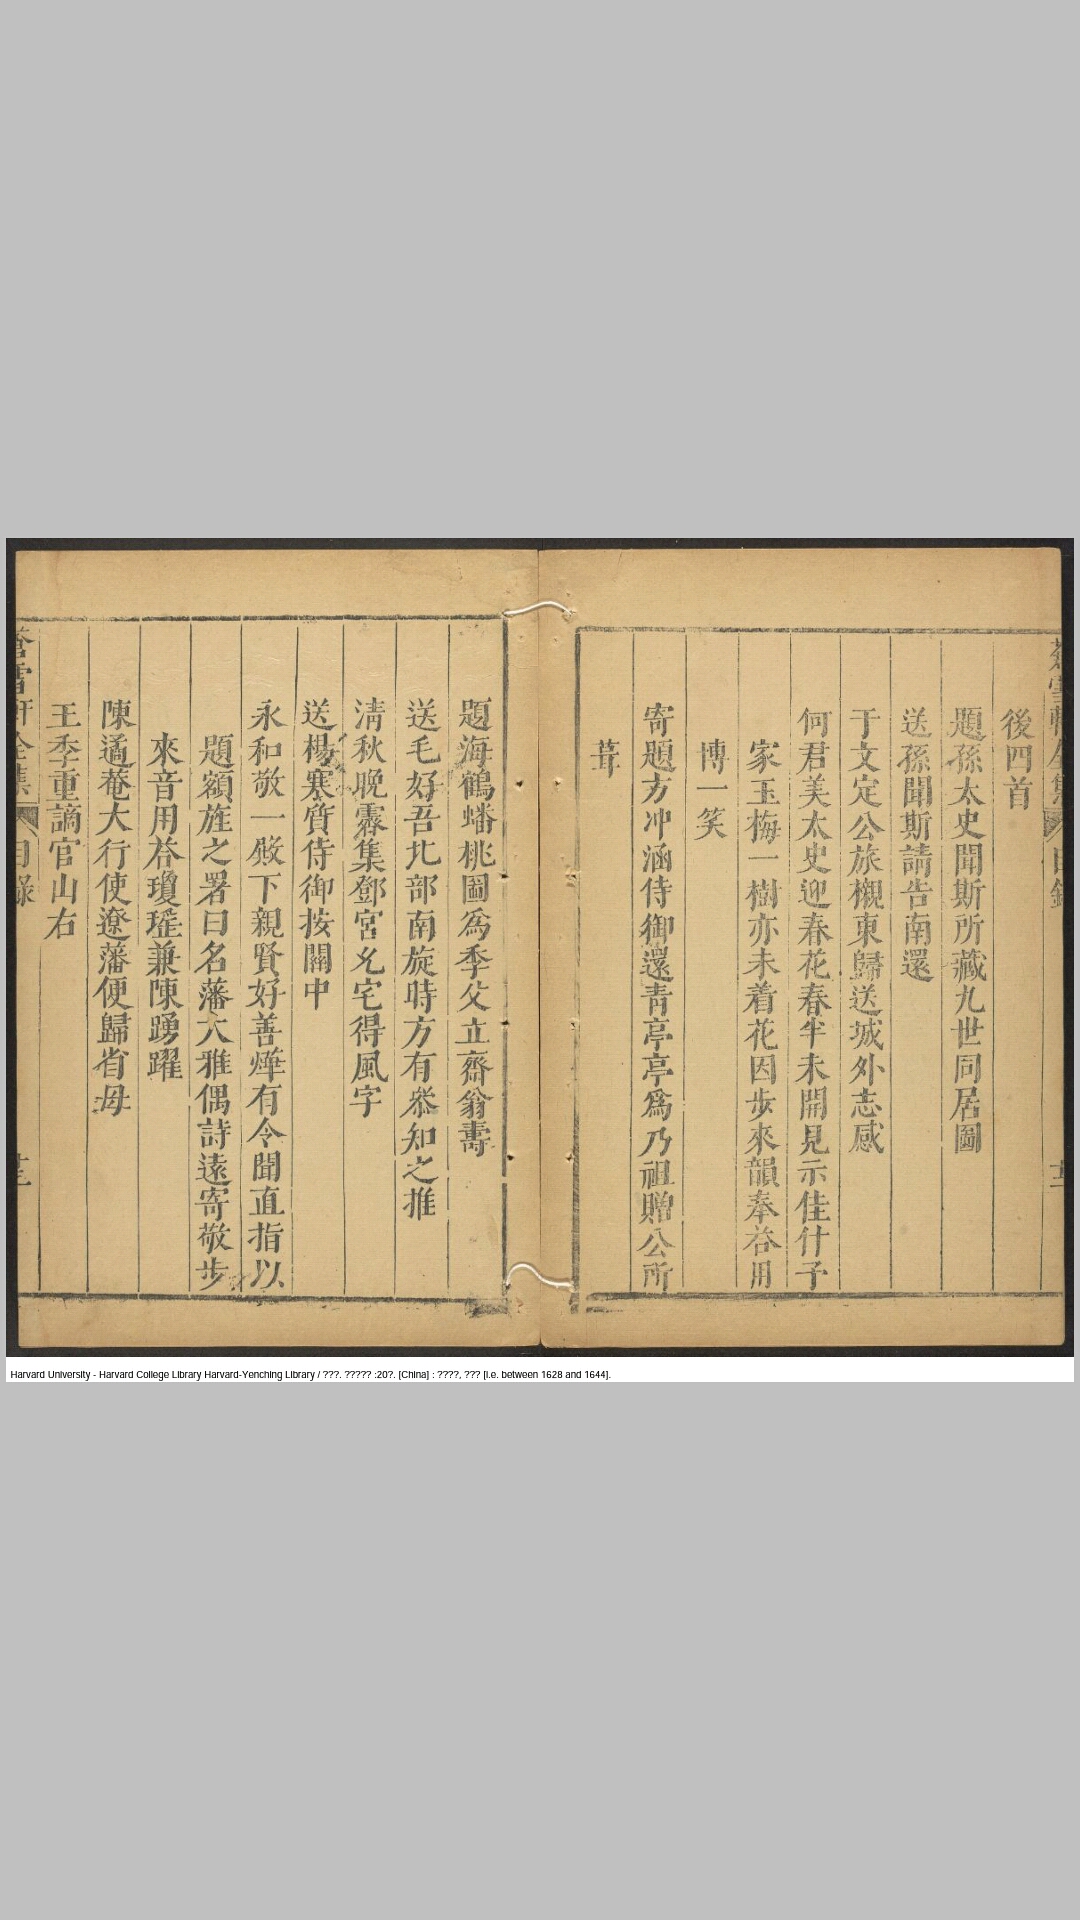 後四首
題孫太史聞斯所藏九世同居圖
送孫聞斯請告南還
于文定公旅櫬東歸送城外志感
何君美太史迎春花春半未開見示佳什予
家玉梅一樹亦未着花因步來韻奉答用
博一笑
寄題方冲涵侍御還青亭亭爲乃祖贈公所
葺
題海鶴蟠桃圖爲季父立齋翁壽
送毛好吾比部南旋時方有叅知之推
淸秋晚霽集鄧宮允宅得風字
送楊寒質侍御按關中
永和敬一殿下親賢好善燁有令聞直指以
題額旌之署曰名藩大雅偶詩遠寄敬步
來音用答瓊瑤兼陳踴躍
陳遹菴大行使遼藩便歸省母
王季重謫官山右
蒼雪軒全集 目錄
Harvard University - Harvard College Library Harvard-Yenching Library / ???. ????? :20?. [China] : ????, ??? [i.e. between 1628 and 1644].